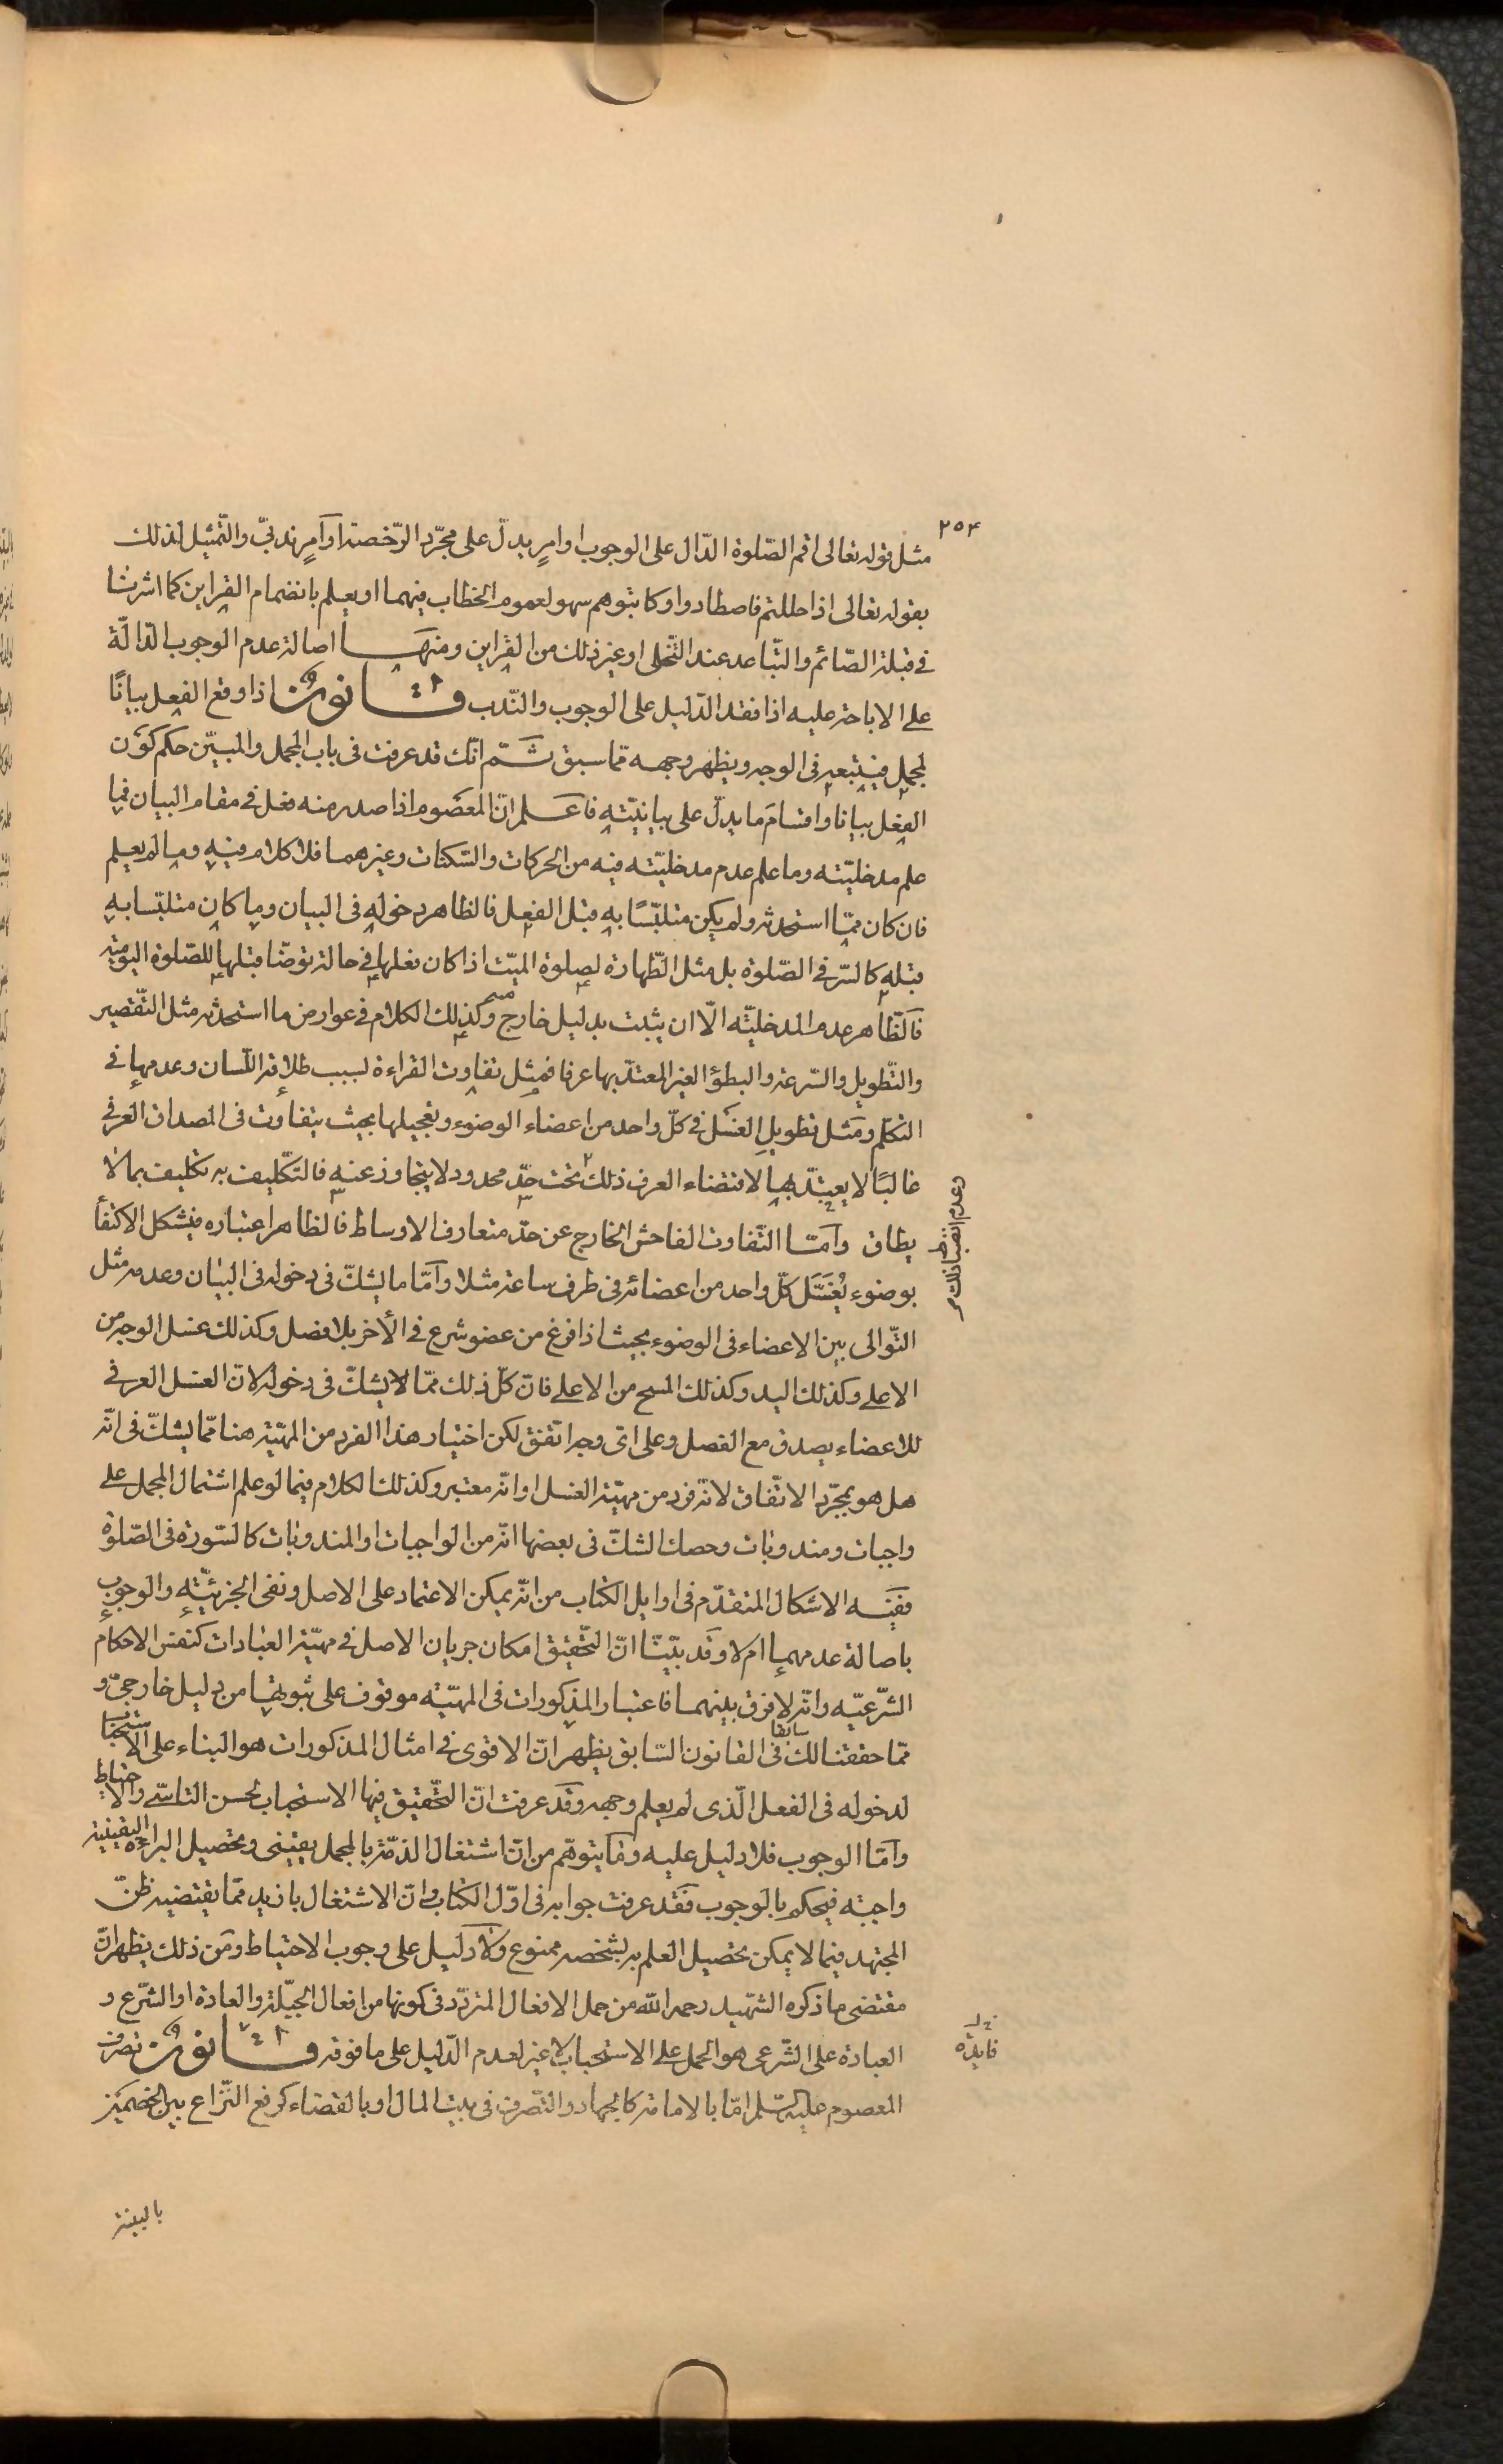 ٢٥٤
مثل قوله تعالى اقم الصّلوة الدّال على الوجوب او امرٍ يدلّ على مجرّد الرّخصة او آمرٍ ندبىّ والتّمثيل لذلك
بقوله تعالى اذا حللتم فاصطادوا وكاتبوهم سهو لعموم الخطاب فيهما او يعلم بانضمام القراين كما اشرنا
فى قبلة الصّائم والتّباعد عند التّخلى او غير ذلك من القراين ومنها اصالة عدم الوجوب الدّالّة
على الاباحة عليه اذا فقد الدّليل على الوجوب والنّدب قانون اذا وقع الفعل بيانًا
لمجمل فيتبعه فى الوجه ويظهر وجهه ممّا سبق ثمّ انّك قد عرفت فى باب المجمل والمبيّن حكم كون
الفعل بيانا واقسام ما يدلّ على بيانيّته فاعلم انّ المعصوم اذا صدر منه فعل فى مقام البيان فما
علم مدخليّته وما علم عدم مدخليّته فيه من الحركات والسّكنات وغيرهما فلا كلام فيه وما لم يعلم
فان كان ممّا استحدثه ولم يكن متلبّسًا به قبل الفعل فالظاهر دخوله فى البيان وما كان متلبّسا به
قبله كالستر فى الصّلوة بل مثل الطّهارة لصلوة الميّت اذا كان فعلها فى حالة توضّا قبلها للصّلوة اليوميّة
فالظّاهر عدم المدخليّة الّا ان يثبت بدليل خارج وكذلك الكلام فى عوارض ما استحدثه مثل التّقصير
والتّطويل والسّرعة والبطؤ الغير المعتدّ بها عرفا فمثل تفاوت القراءة لسبب طلاقة اللّسان وعدمها فى
التكلّم ومثل تطويل الغسل فى كلّ واحد من اعضاء الوضوء وتعجيلها بحيث يتفاوت فى المصداق العرفى
غالبًا لا يعتدّ بها لاقتضاء العرف ذلك تحت حدّ محدود لا يتجاوز عنه فالتكليف به تكليف بما لا
وعدم انضباط ذلك
يطاق وامّا التّفاوت الفاحش الخارج عن حدّ متعارف الاوساط فالظاهر اعتباره فيشكل الاكتفأ
بوضوء يُغسَل كلّ واحد من اعضائه فى ظرف ساعة مثلا وامّا ما يشكّ فى دخوله فى البيان وعدمه مثل
التّوالى بين الاعضاء فى الوضوء بحيث اذا فرغ من عضو شرع فى الأخر بلا فصل وكذلك غسل الوجه من
الاعلى وكذلك اليد وكذلك المسح من الاعلى فانّ كلّ ذلك ممّا لا يشكّ فى دخوله لانّ الغسل العرفى
للاعضاء يصدق مع الفصل وعلى اىّ وجه اتّفق لكن اختيار هذا الفرد من المهيّة هنا ممّا يشكّ فى انّه
هل هو بمجرّد الاتّفاق لانّه فرد من مهيّة الغسل او انّه معتبر وكذلك الكلام فيما لو علم اشتمال المجمل على
واجبات ومندوبات وحصل الشكّ فى بعضها انّه من الواجبات او المندوبات كالسّورة فى الصّلوة
ففيه الاشكال المتقدّم فى اوايل الكتاب من انّه يمكن الاعتماد على الاصل ونفى الجزئيّة والوجوب
باصالة عدمهما ام لا وقد بيّنّا انّ التّحقيق امكان جريان الاصل فى مهيّة العبادات كنفس الاحكام
الشّرعيّه وانّه لا فرق بينهما فاعتبار المذكورات فى المهيّة موقوف على ثبوتها من دليل خارجىّ و
ممّا حققنا لك سابقا فى القانون السّابق يظهر انّ الاقوى فى امثال المذكورات هو البناء على الاستحباب
لدخوله فى الفعل الّذى لم يعلم وجهه وقد عرفت انّ التّحقيق فيها الاستحباب لحسن التاسّى والاحتياط
وامّا الوجوب فلا دليل عليه وما يتوهّم من انّ اشتغال الذمّة بالمجمل يقينى وتحصيل البراءة اليقينيّة
واجبة فيحكم بالوجوب فقد عرفت جوابه فى اوّل الكتاب وانّ الاشتغال بازيد ممّا يقتضيه ظنّ
المجتهد فيما لا يمكن تحصيل العلم به لشخصه ممنوع ولا دليل على وجوب الاحتياط ومن ذلك يظهر انّ
مقتضى ما ذكره الشّهيد رحمه اللّه من حمل الافعال المتردّد فى كونها من افعال الجبلّة والعادة او الشّرع و
العبادة على الشّرعى هو الحمل على الاستحباب لا غير لعدم الدّليل على ما فوقه قانون تصرف
فايدة
المعصوم عليه السّلم امّا بالامامة كالجهاد والتصرف فى بيت المال او بالقضاء كرفع النّزاع بين الخصمين
بالبينة